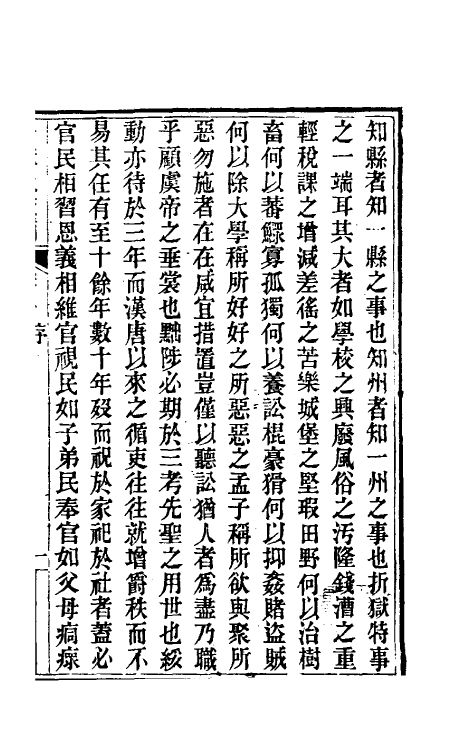 知縣者知一縣之事也知州者知一州之事也折獄特事
之一端耳其大者如學校之興廢風俗之污隆錢漕之重
輕稅課之增減差徭之苦樂城堡之堅瑕田野何以治樹
畜何以蕃鰥寡孤獨何以養訟棍豪猾何以抑姦賭盜賊
何以除大學稱所好好之所惡惡之孟子稱所欲與聚所
惡勿施者在在咸宜措置豈僅以聽訟猶人者為盡乃職
乎顧虞帝之垂裳也黜陟必期於三考先聖之用世也綏
動亦待於三年而漢唐以來之循吏往往就增爵秩而不
易其任有至十餘年數十年歿而祝於家祀於社者蓋必
官民相習恩義相維官視民如子弟民奉官如父母痌瘝
序
一